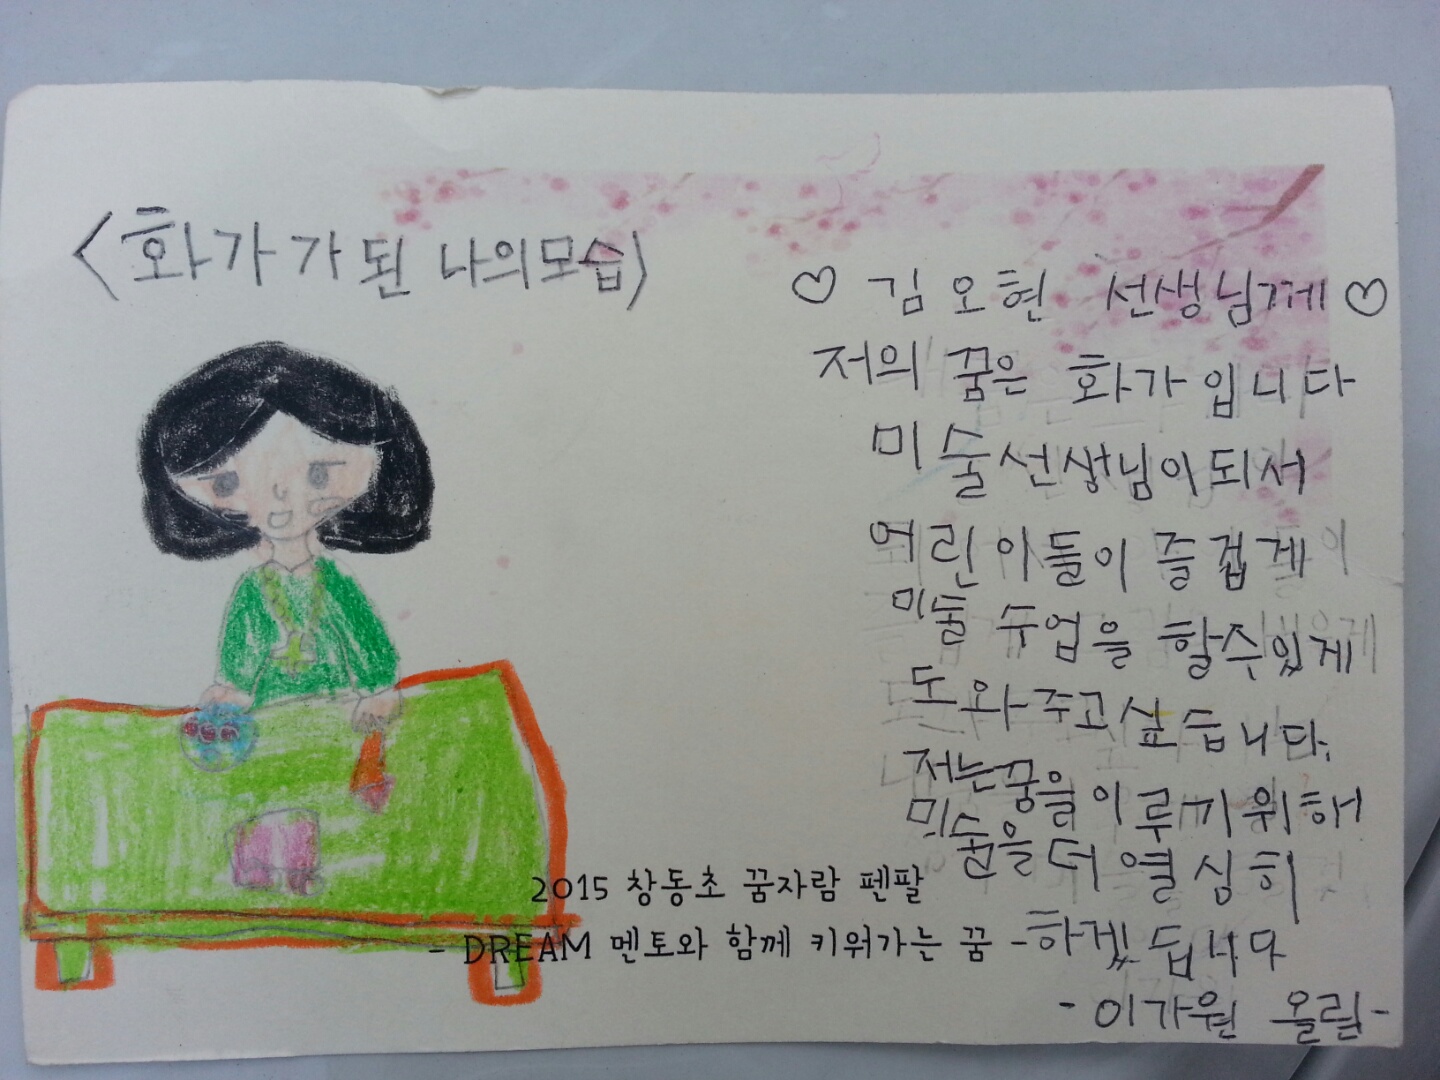 <화가가 된 나의모습>
♡ 김오현 선생님께 ♡
저의 꿈은 화가입니다
미술선생님이되서
어린이들이 즐겁게
미술 수업을 할수있게
도와주고싶습니다.
저는꿈을이루기위해
미술을더열심히
하겠습니다
-이가원 올림-
2015 창동초 꿈자람 펜팔
- DREAM 멘토와 함께 키워가는 꿈 -